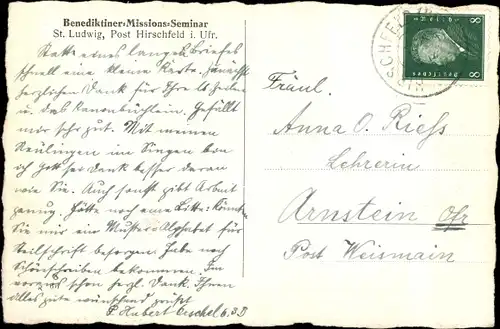 Benediktiner-Missions-Seminar
St. Ludwig, Post Hirschfeld i. Ufr.
Statt eines langen Briefes
schnell eine kleine Karte. Zunächst
herzlichen Dank für Ihre lb. Zeilen
u. das Kanonbüchlein. Gefällt
mir sehr gut. Mit meinen
Neulingen im Singen bin
ich Gott sei Dank besser daran
wie Sie. Auch sonst gibt Arbeit
genug. Hätte noch eine Bitte: Könnten
Sie mir ein Muster Alphabet für
Steilschrift besorgen. Habe noch
Schönschreiben bekommen. Im
voraus schon herzl. Dank. Ihnen
alles gute wünschend grüßt
P. Hubert
8 8
Deutsches Reich
Fräul.
Anna O. Rieß
Lehrerin
Arnstein Ofr
Post Weismain